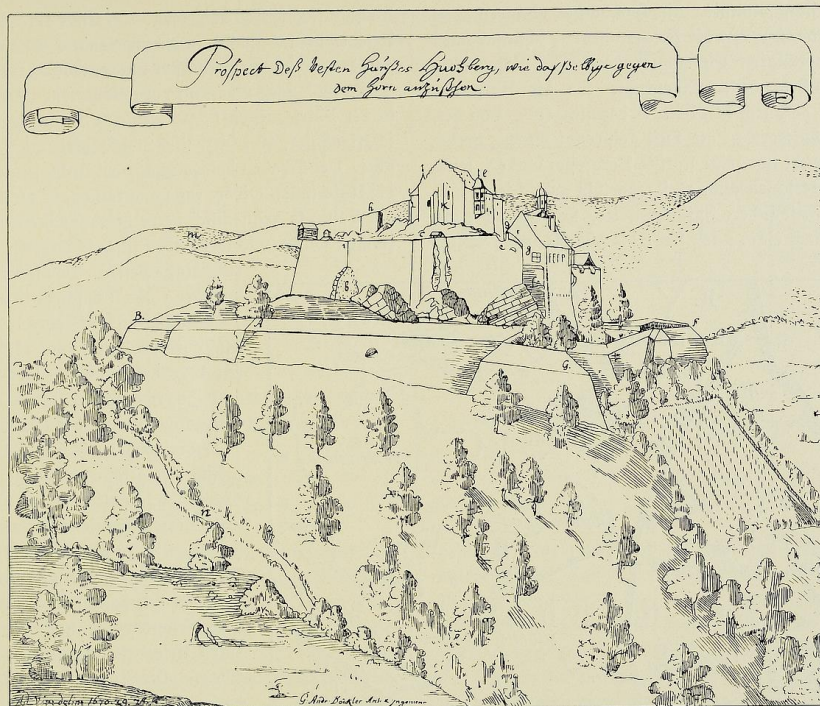 Prospect Deß Vesten Haußes Hutzberg, wie dasselbige gegen
dem Horn anzusehen.
i
e
h
K
m
g
B.
f
G.
n
1670
G Andr Böckler Arch. & Ingenieur